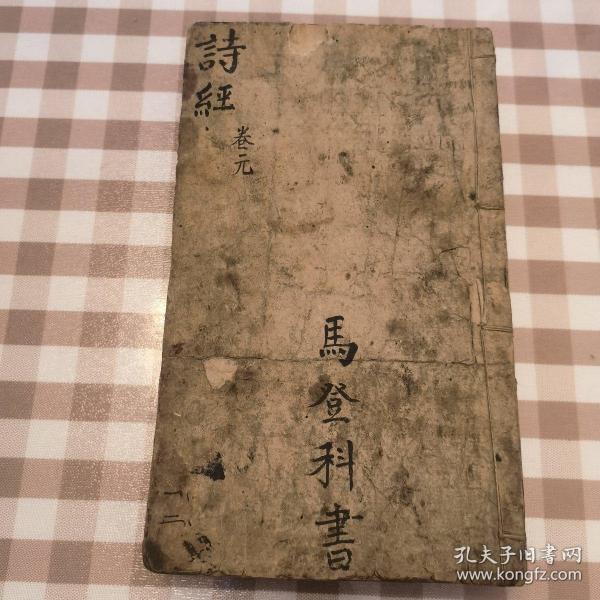 詩經
卷元
馬登科書
一二
孔夫子旧书网
www.kongfz.com